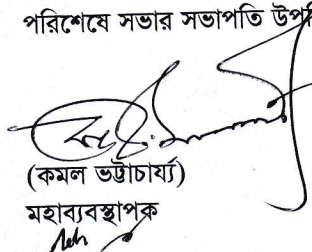 পরিশেষে সভার সভাপতি
(কমল ভট্টাচার্য্য)
মহাব্যবস্থাপক